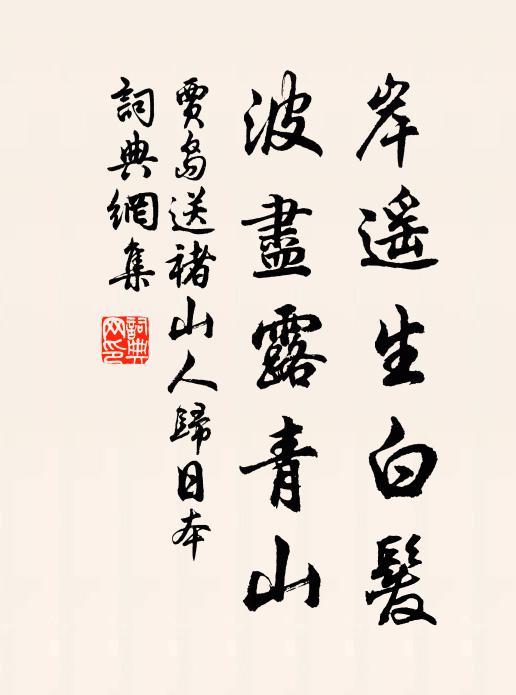 岸遥生白髮
波盡露青山
賈島送褚山人歸日本
詞典網集
詞典
网印